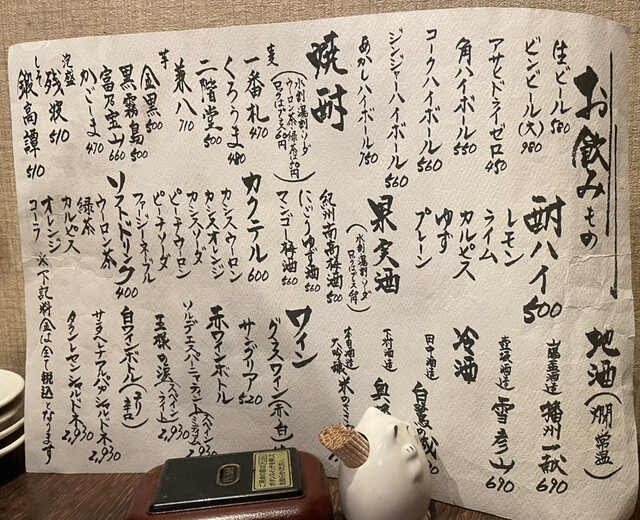 お飲みもの
生ビール 580
ビンビール(大) 980
アサヒドライゼロ 450
角ハイボール 550
コークハイボール 560
ジンジャーハイボール 560
あかしハイボール 750
焼酎
(水割・湯割・ソーダ
麦
一番札 470
くろうま 480
二階堂 500
兼八 710
芋
金黒 500
黒霧島 500
富乃宝山 660
かごしま 470
泡盛
残波 510
しそ
鍛高譚 510
酎ハイ 500
レモン
ライム
カルピス
ゆず
プレーン
果実酒
(水割・湯割・ソーダ
紀州南高梅酒 500
にごりゆず酒 560
マンゴー梅酒 560
カクテル 600
カシスウーロン
カシスオレンジ
カシスソーダ
ピーチウーロン
ピーチソーダ
ファジーネーブル
ソフトドリンク 400
ウーロン茶
緑茶
カルピス
オレンジ
コーラ
地酒(燗・常温)
山陽盃酒造 播州一献 690
壺坂酒造 雪彦山 690
冷酒
田中酒造 白鷺の城
下村酒造 奥播
本田酒造
大吟醸 米のささ
ワイン
グラスワイン(赤・白)
サングリア 520
赤ワインボトル
王様の涙(スペイン 2,930
白ワインボトル
サンタヘレナアルパカシャルドネ 2,930
タラントセンシャルドネ 2,930
※下記料金は全て税込となります